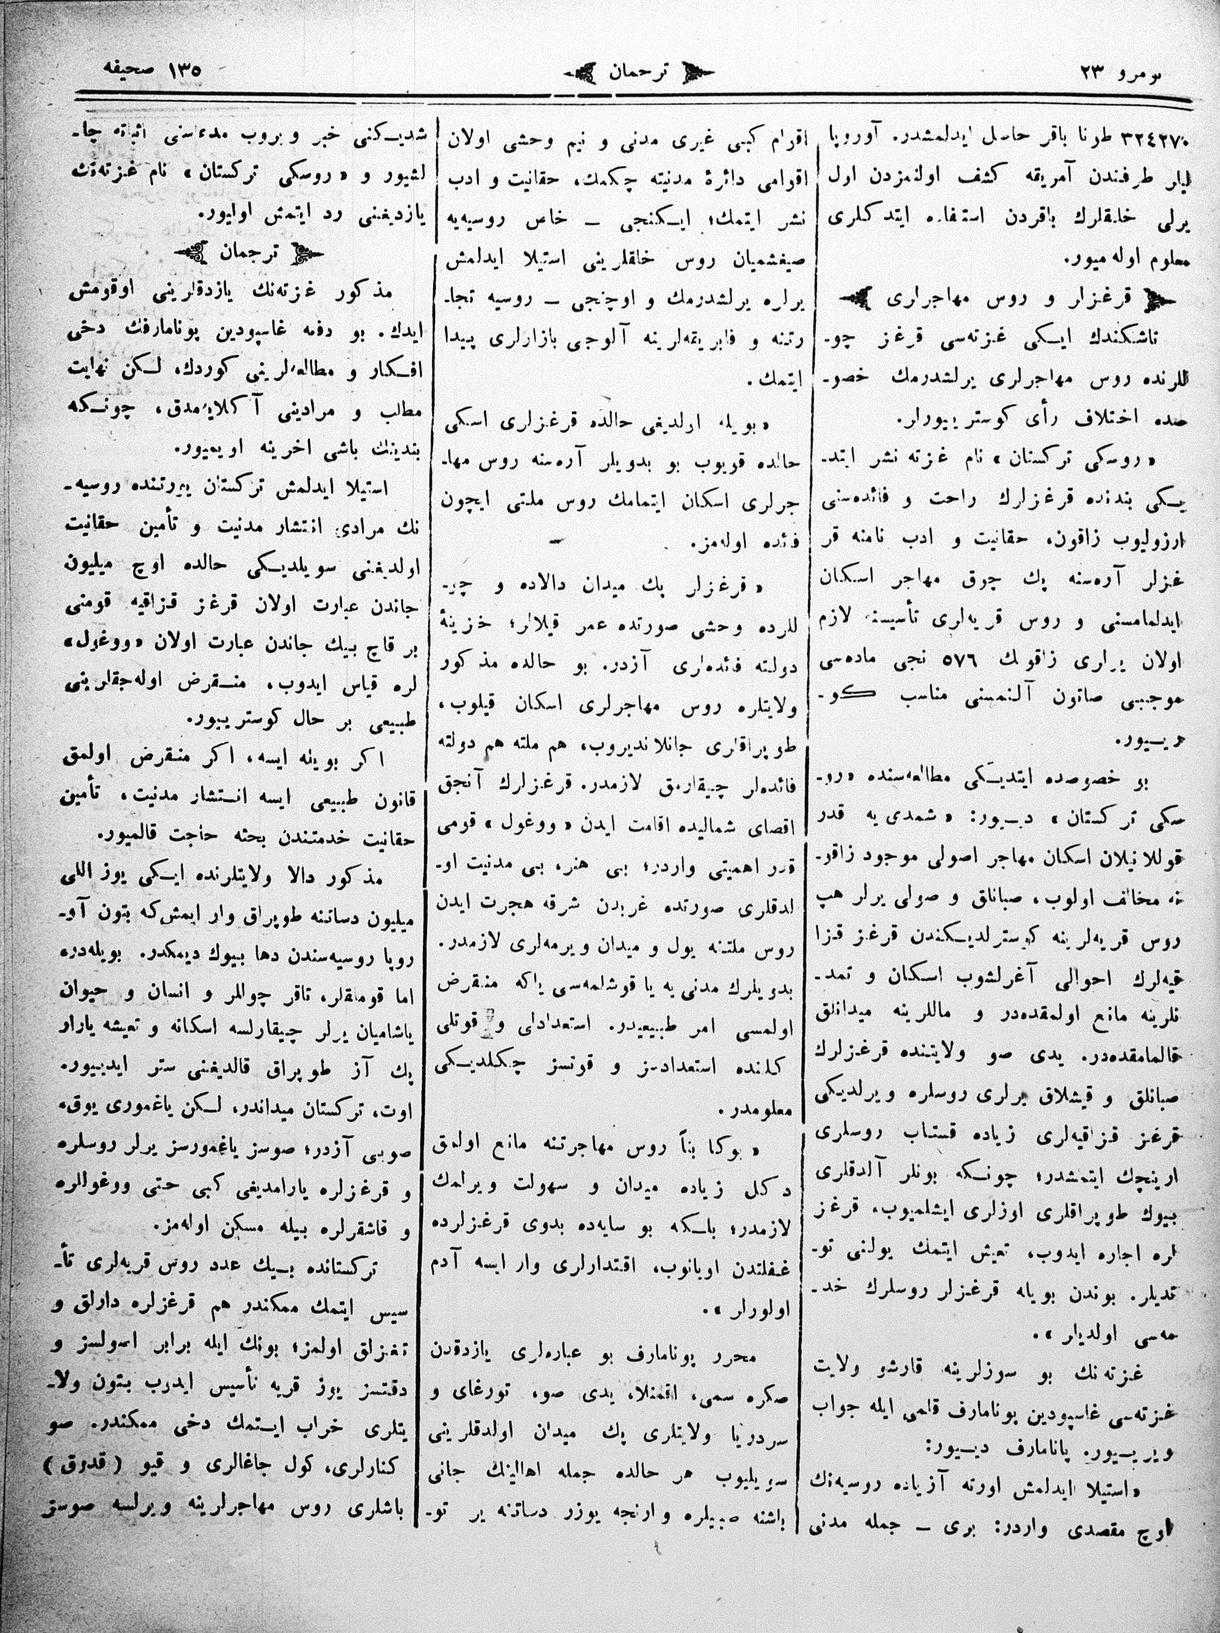 نومرو ٢٣
ترجمان
١٣٥ صحیفه
٣٢٤٢٧٠ طونا باقر حاصل ایدلمشدر. آوروپا
لیلر طرفندن آمریقه کشف اولنمزدن اول
یرلی خلقلرك باقردن استفاده ایتدکلری
معلوم اوله میور.
قرغزلر و روس مهاجرلری
تاشکندك ایکی غزته‌سی قرغز چو‌ـ
للرنده روس مهاجرلری یرلشدرمك خصو‌ـ
صده اختلاف رأی کوستر ییورلر.
«روسکی ترکستان» نام غزته نشر ایتد‌ـ
یکی بندنده قرغزلرك راحت و فائده‌سنی
ارزولیوب زاقون، حقانیت و ادب نامنه قر
غزلر آره‌سنه پك چوق مهاجر اسکان
ایدلمامسنی و روس قریه‌لری تأسیسنه لازم
اولان یرلری زاقونك ٥٧٦ نجی ماده‌سی
موجبی صاتون آلنمسنی مناسب کو‌ـ
ریییور.
بو خصوصده ایتدیکی مطالعه‌سنده «رو‌ـ
سکی ترکستان» دییور: «شمدی یه قدر
قوللانیلان اسکان مهاجر اصولی موجود زاقو‌ـ
نه مخالف اولوب، صبانلق و صولی یرلر هپ
روس قریه‌لرینه کوسترلدیکندن قرغز قزا
قیه‌لرك احوالی آغرلشوب اسکان و تمد‌ـ
نلرینه مانع اولمقده‌در و ماللرینه میدانلق
قالمامقده‌در. یدی صو ولایتنده قرغزلرك
صبانلق و قیشلاق یرلری روسلره ویرلدیکی
قرغز قزاقیه‌لری زیاده قستاب روسلری
ارینچك ایتمشدر؛ چونکه بونلر آلدقلری
بیوك طوپراقلری اوزلری ایشلمیوب، قرغز
لره اجاره ایدوب، تعیش ایتمك یولنی تو‌ـ
تدیلر. بوندن بویله قرغزلر روسلرك خد‌ـ
مه‌سی اولدیلر».
غزته‌نك بو سوزلرینه قارشو ولایت
غزته‌سی غاسپودین پونامارف قلمی ایله جواب
ویرییور. پانامارف دییور:
«استیلا ایدلمش اورته آزیاده روسیه‌نك
اوچ مقصدی واردر: بری ـ جمله مدنی
اقوام کبی غیری مدنی و نیم وحشی اولان
اقوامی دائرۀ مدنیته چکمك، حقانیت و ادب
نشر ایتمك؛ ایکنجی ـ خاص روسیه‌یه
صیغشمیان روس خلقلرینی استیلا ایدلمش
یرلره یرلشدرمك و اوچنجی ـ روسیه تجا‌ـ
رتنه و فابریقه‌لرینه آلوجی بازارلری پیدا
ایتمك.
«بویله اولدیغی حالده قرغزلری اسکی
حالده قویوب بو بدویلر آره‌سنه روس مها‌ـ
جرلری اسکان ایتمامك روس ملتی ایچون
فائده اوله‌مز.
«قرغزلر پك میدان دالاده و چو‌ـ
للرده وحشی صورتده عمر قیلالر؛ خزینۀ
دولته فائده‌لری آزدر. بو حالده مذکور
ولایتلره روس مهاجرلری اسکان قیلوب،
طوپراقلری جانلاندیروب، هم ملته هم دولته
فائده‌لر چیقارمق لازمدر. قرغزلرك آنجق
اقصای شمالیده اقامت ایدن «ووغول» قومی
قدر اهمیتی واردر؛ بی هنر، بی مدنیت او‌ـ
لدقلری صورتده غربدن شرقه هجرت ایدن
روس ملتنه یول و میدان ویرمه‌لری لازمدر.
بدویلرك مدنی یه یا قوشلمه‌سی یاکه منقرض
اولمسی امر طبیعیدر. استعدادلی و قوتلی
کلنده استعدادسز و قوتسز چکلدیکی
معلومدر.
«بوکا بناً روس مهاجرتنه مانع اولمق
دکل زیاده میدان و سهولت ویرلمك
لازمدر؛ بلکه بو سایه‌ده بدوی قرغزلرده
غفلتدن اویانوب، اقتدارلری وار ایسه آدم
اولورلر».
محرر پونامارف بو عباره‌لری یازدقدن
صکره سمی، اقمنلا، یدی صو، تورغای و
سردریا ولایتلری پك میدان اولدقلرینی
سویلیوب هر حالده جمله اهالینك جانی
باشنه صبیلره وارنجه یوزر دساتنه یر تو‌ـ
شدیکنی خبر ویروب مدعاسنی اثباته چا‌ـ
لشیور و «روسکی ترکستان» نام غزته‌نك
یازدیغنی رد ایتمش اولیور.
ترجمان
مذکور غزته‌نك یازدقلرینی اوقومش
ایدك. بو دفعه غاسپودین پونامارفك دخی
افکار و مطالعه‌لرینی کوردك، لکن نهایت
مطلب و مرادینی آکلایه‌مدق، چونکه
بندینك باشی اخرینه اویمیور.
استیلا ایدلمش ترکستان یورتنده روسیه‌ـ
نك مرادی انتشار مدنیت و تأمین حقانیت
اولدیغنی سویلدیکی حالده اوچ میلیون
جاندن عبارت اولان قرغز قزاقیه قومنی
بر قاچ بیك جاندن عبارت اولان «ووغول»
لره قیاس ایدوب، منقرض اوله‌جقلرینی
طبیعی بر حال کوستریور.
اکر بویله ایسه، اکر منقرض اولمق
قانون طبیعی ایسه انتشار مدنیت، تأمین
حقانیت خدمتندن بحثه حاجت قالمیور.
مذکور دالا ولایتلرنده ایکی یوز اللی
میلیون دساتنه طوپراق وار ایمش‌که بتون آو‌ـ
روپا روسیه‌سندن دها بیوك دیمکدر. بویله‌در؛
اما قوملقلر، تاقر چوللر و انسان و حیوان
یاشامیان یرلر چیقارلسه اسکانه و تعیشه یارار
پك آز طوپراق قالدیغنی ستر ایدییور.
اوت، ترکستان میداندر، لکن یاغموری یوق،
صویی آزدر؛ صوسز یاغمورسز یرلر روسلره
و قرغزلره یارامدیغی کبی حتی ووغوللره
و قاشقرلره بیله مسکن اوله‌مز.
ترکستانده بیك عدد روس قریه‌لری تأ‌ـ
سیس ایتمك ممکندر هم قرغزلره دارلق و
تغزلق اولمز؛ بونك ایله برابر اصولسز و
دقتسز یوز قریه تأسیس ایدوب بتون ولا‌ـ
یتلری خراب ایتمك دخی ممکندر. صو
کنارلری، کول جاغالری و قیو (قدوق)
باشلری روس مهاجرلرینه ویرلسه صوسز